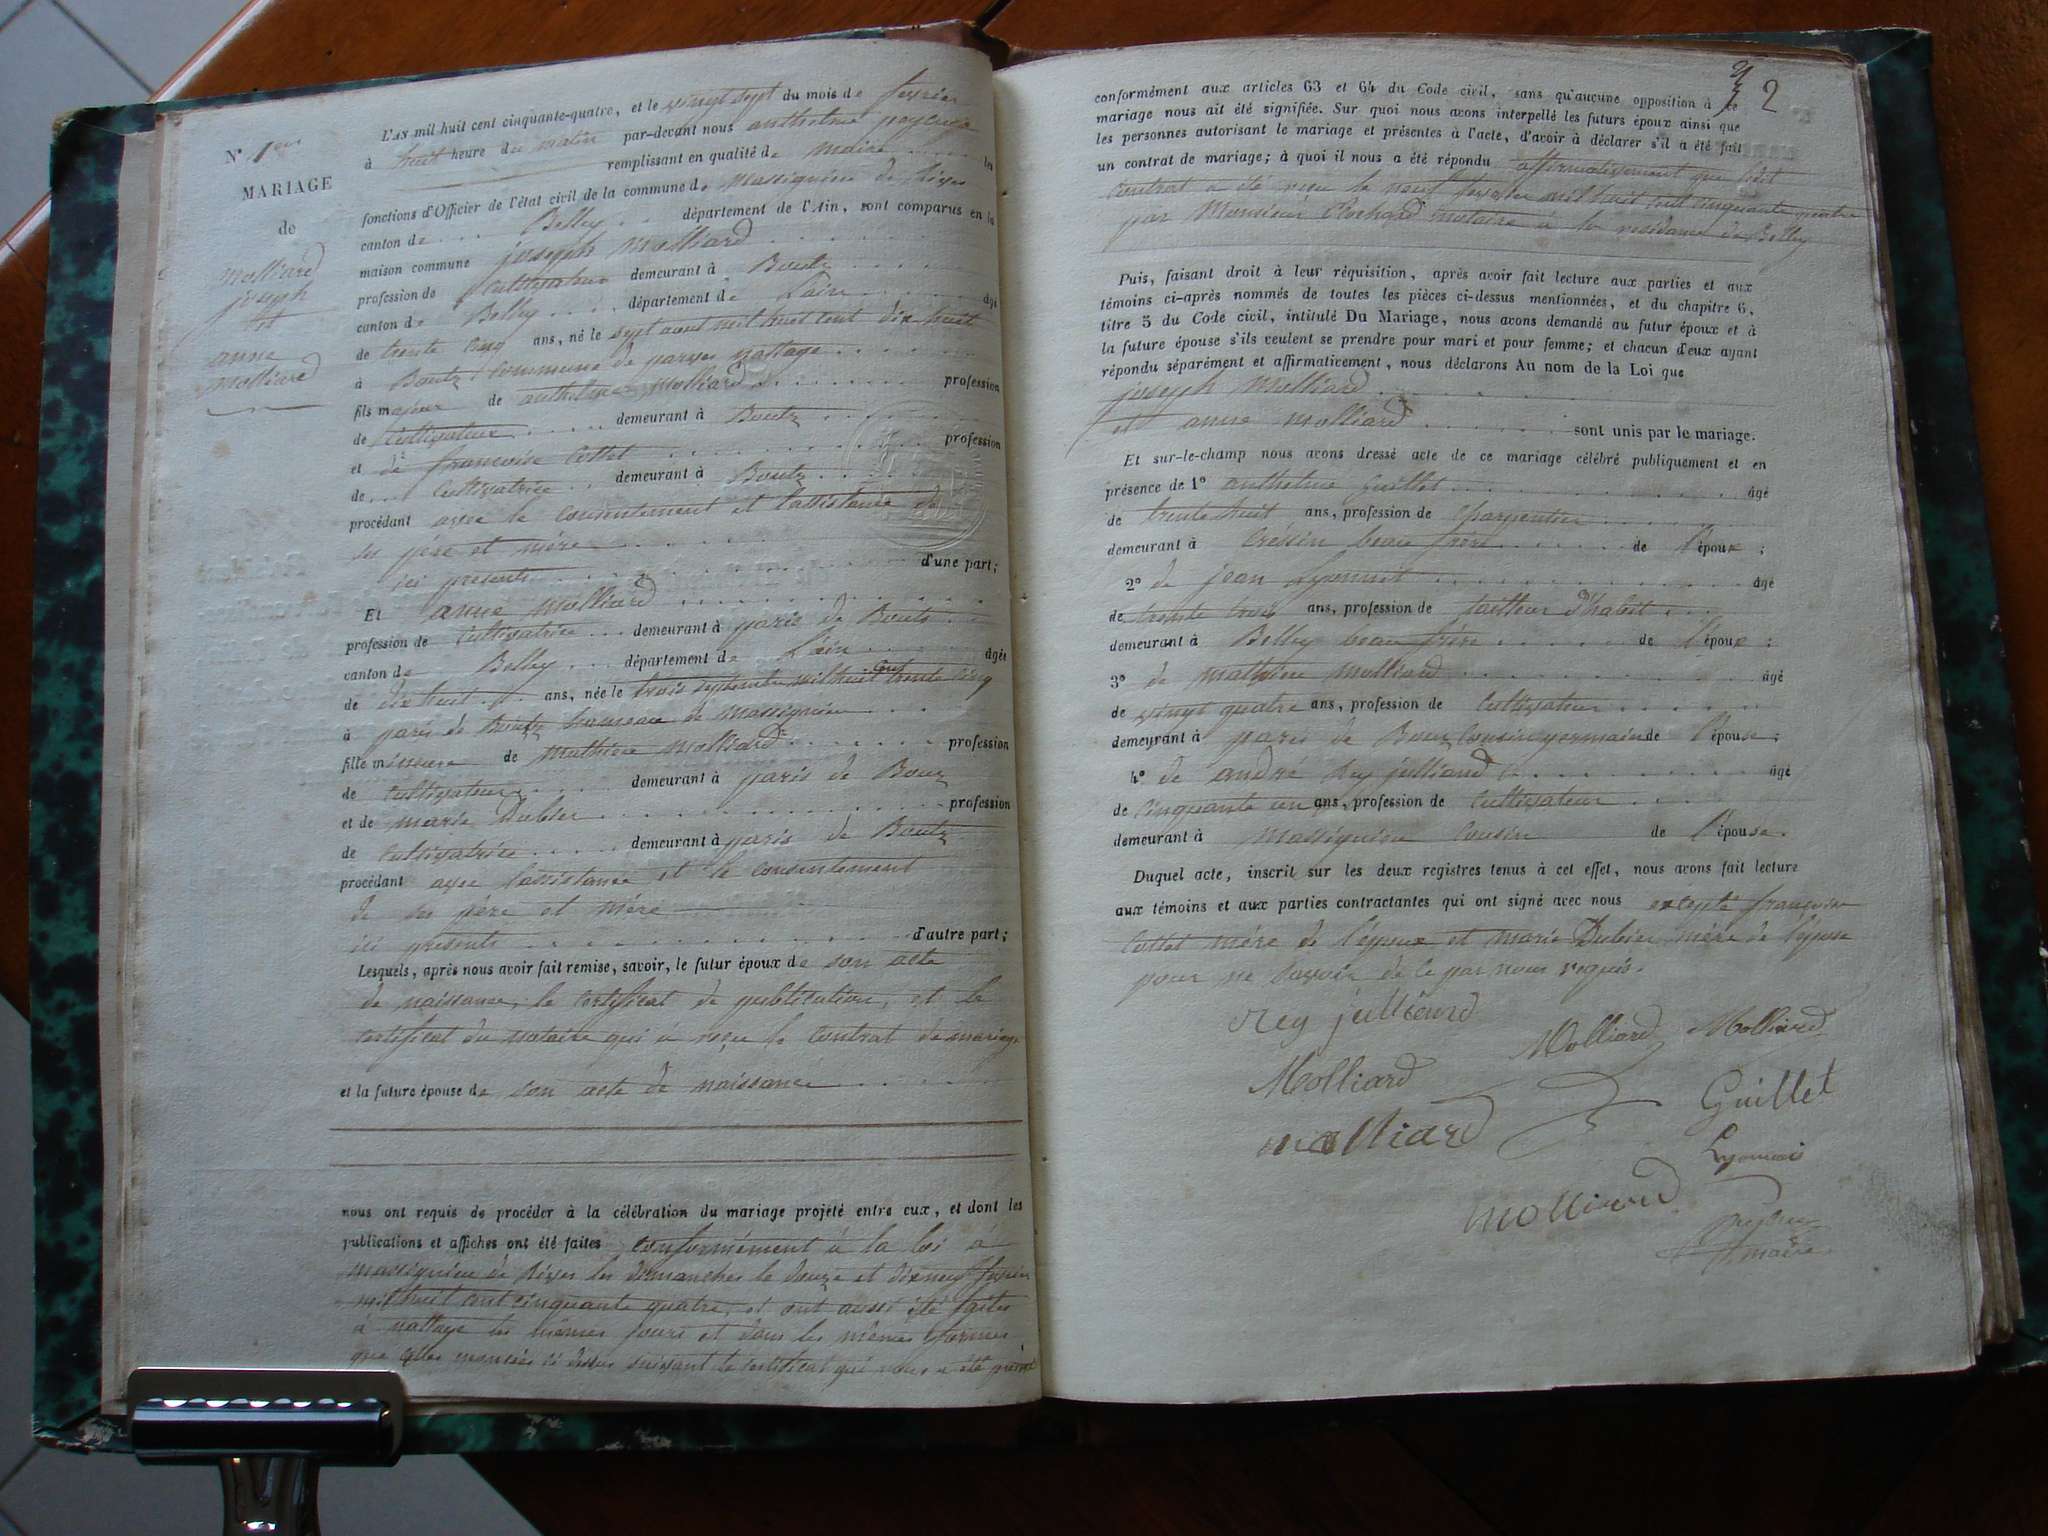 N° 1er
MARIAGE
de
Molliard
joseph
et
anne
Molliard
L'AN mil huit cent cinquante-quatre, et le vingt sept du mois de fevrier
à huit heure du matin par-devant nous anthelme peysieux
remplissant en qualité de Maire les
fonctions d'Officier de l'état civil de la commune de Massignieu de Rives
canton de Belley département de l'Ain, sont comparus en la
maison commune joseph Molliard
profession de Cultivateur demeurant à Boutz
canton de Belley département de L'ain âgé
de trente cinq ans, né le sept aout mil huit cent dix huit
à Boutz Commune de parves nattage
fils majeur de anthelme Molliard profession
de Cultivateur demeurant à Boutz
et de françoise Cottet profession
de Cultivatrice demeurant à Boutz
procédant avec le consentement et l'assistance de
ses père et mère
ici presents d'une part;
Et anne Molliard
profession de Cultivatrice demeurant à paris de Boutz
canton de Belley département de L'ain âgée
de dix huit ans, née le trois septembre mil huit cent trente cinq
à paris de Boutz hameau de Massignieu
fille mineure de Mathieu Molliard profession
de Cultivateur demeurant à paris de Bouz
et de marie Dubier profession
de Cultivatrice demeurant à paris de Boutz
procédant avec l'assistance et le consentement
de ses père et mère
ici presents d'autre part;
Lesquels, après nous avoir fait remise, savoir, le futur époux de son acte
de naissance, le certificat de publication, et le
certificat du notaire qui a reçu le contrat de mariage
et la future épouse de son acte de naissance
nous ont requis de procéder à la célébration du mariage projeté entre eux, et dont les
publications et affiches ont été faites conformément à la loi à
massignieu de Rives les dimanches le douze et dixneuf fevrier
mil huit cent cinquante quatre, et ont aussi été faites
à nattage les mêmes jours et dans les mêmes formes
que celles énoncées ci dessus suivant le certificat qui nous a été
2
conformément aux articles 63 et 64 du Code civil, sans qu'aucune opposition à ce
mariage nous ait été signifiée. Sur quoi nous avons interpellé les futurs époux ainsi que
les personnes autorisant le mariage et présentes à l'acte, d'avoir à déclarer s'il a été fait
un contrat de mariage; à quoi il nous a été répondu affirmativement que ledit
contrat a été reçu le neuf fevrier mil huit cent cinquante quatre
par Monsieur Rochard notaire à la residance de Belley
Puis, faisant droit à leur réquisition, après avoir fait lecture aux parties et aux
témoins ci-après nommés de toutes les pièces ci-dessus mentionnées, et du chapitre 6,
titre 5 du Code civil, intitulé Du Mariage, nous avons demandé au futur époux et à
la future épouse s'ils veulent se prendre pour mari et pour femme; et chacun d'eux ayant
répondu séparément et affirmativement, nous déclarons Au nom de la Loi que
joseph Molliard
et anne Molliard sont unis par le mariage.
Et sur-le-champ nous avons dressé acte de ce mariage célébré publiquement et en
présence de 1° anthelme guillet âgé
de trente huit ans, profession de charpentier
demeurant à Cressin beau frère de l'époux;
2° de jean Lyonnais âgé
de trente trois ans, profession de tailleur d'habit
demeurant à Belley beau frère de l'époux;
3° de mathieu molliard âgé
de vingt quatre ans, profession de Cultivateur
demeurant à paris de Bouz Cousin germain de l'épouse;
4° de andré Rey julliand âgé
de cinquante un ans, profession de Cultivateur
demeurant à massignieu cousin de l'épouse.
Duquel acte, inscrit sur les deux registres tenus à cet effet, nous avons fait lecture
aux témoins et aux parties contractantes qui ont signé avec nous excepté françoise
Cottet mère de l'époux et marie Dubier mère de l'épouse
pour ne savoir de ce par nous requis.
Rey julliand
Molliard Molliard
Molliard
Guillet
molliard
Lyonnais
Molliard
maire